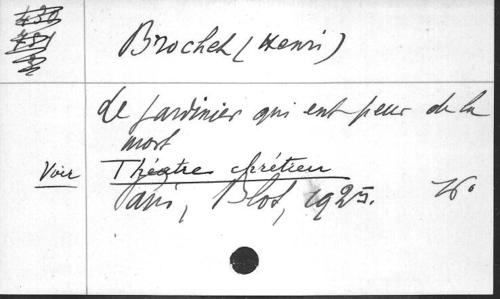 Brochet (Henri)
Le jardinier qui eut peur de la
mort
Voir Théâtre chrétien
Paris, Blot, 1925. 16°